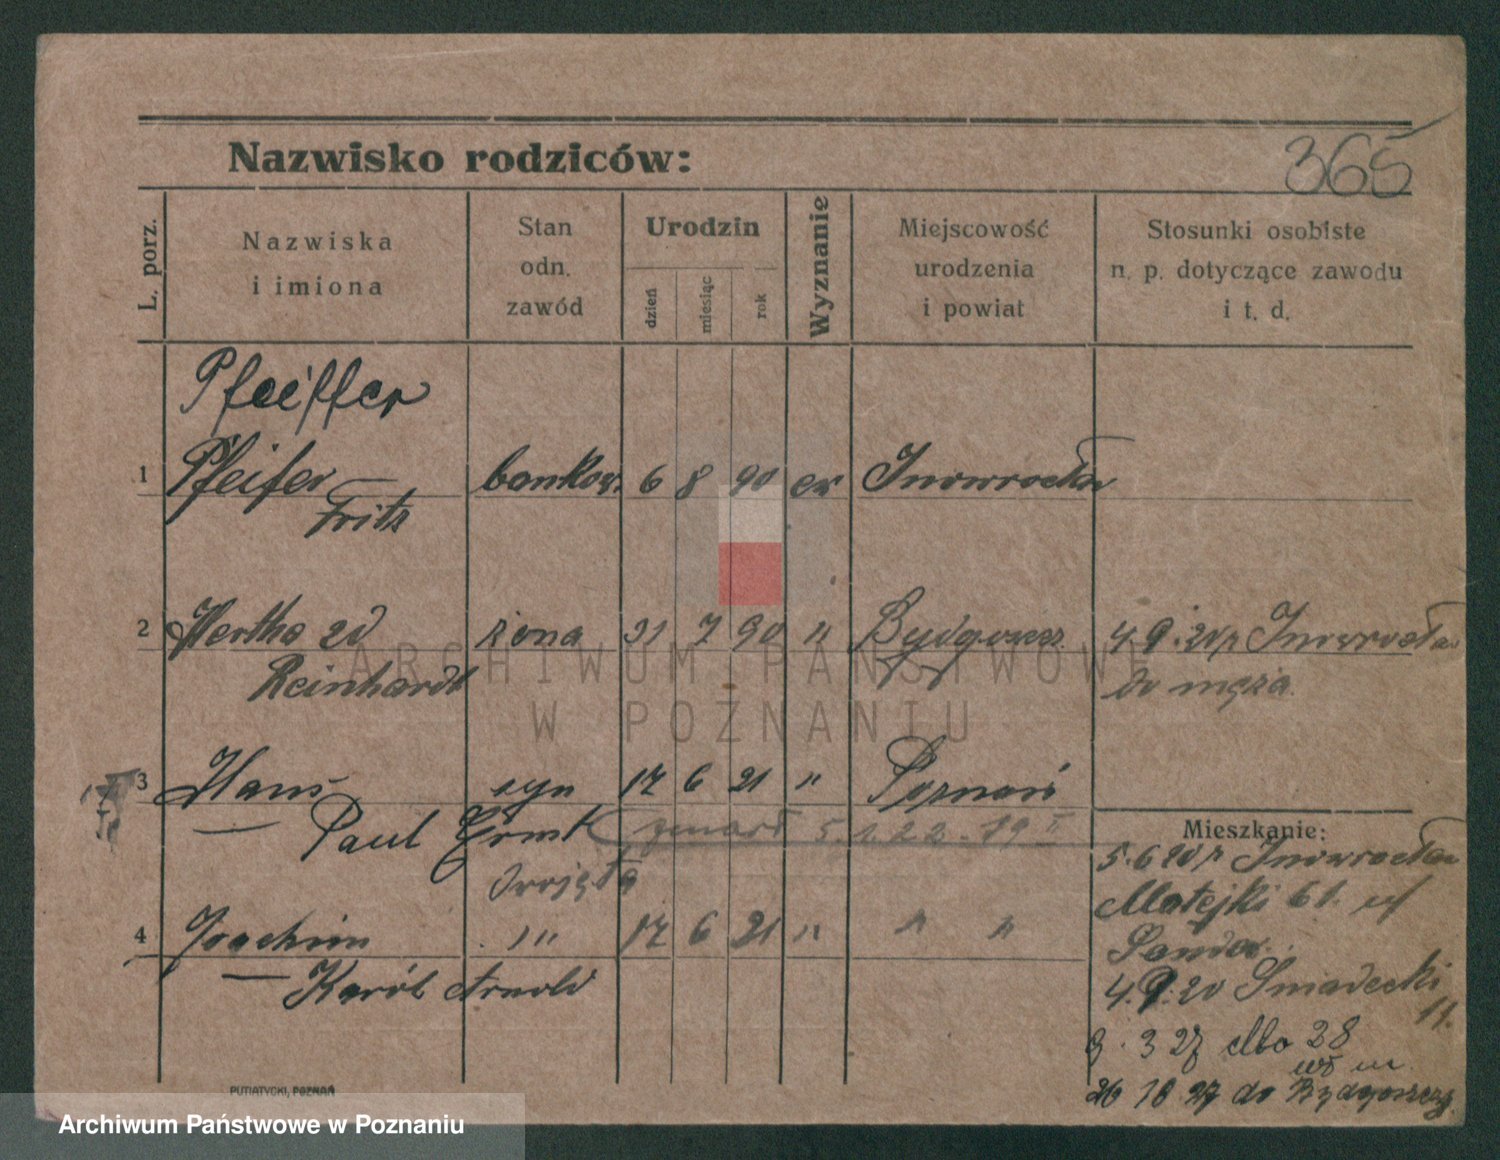 365
Nazwisko rodziców:
L. porz.
Nazwiska
i imiona
Stan
odn.
zawód
Urodzin
dzień
miesiąc
rok
Wyznanie
Miejscowość
urodzenia
i powiat
Stosunki osobiste
n. p. dotyczące zawodu
i t. d.
Pfeiffer
1 Pfeifer bankow. 6 8 90 ew Inowrocław
Fritz
2 Hertha zd żona 31 7 90 " Bydgoszcz 4.9.20 z Inowrocław
Reinhardt do męża
ARCHIWUM PAŃSTWOWE
W POZNANIU
3 Hans syn 17 6 21 " Poznań
Paul Ernst zmarł 5.1.22
4 Joachim " 17 6 21 " " "
Karól Arnold
Mieszkanie:
5.6 20 z Inowrocław
Matejki 61
4.9.20 Śniadecki
11.
3 27 28
26 10 27 do Bydgoszczy
PUTIATYCKI, POZNAŃ
Archiwum Państwowe w Poznaniu